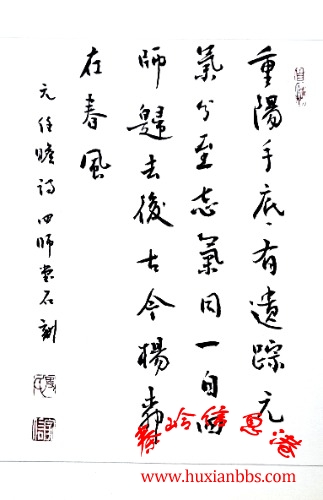 重陽手有遺踪元
氣分至志氣同一自四
師歸去後古今楊柳
在春風
元任瞻詩四師堂石刻
www.huxianbbs.com